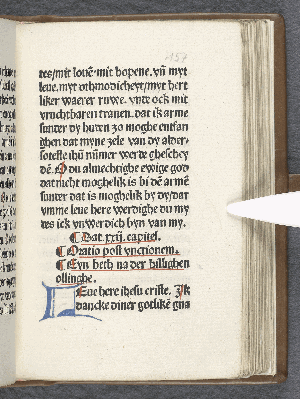 157
tes/mit loue. mit hopene. vn̄ myt
leue. myt othmodicheyt/myt hert
liker waerer ruwe. vnde ock mit
vruchtbaren tranen. dat ik arme
sunder dy huten zo moghe entfan
ghen dat myne zele van dy alder-
soteste ihū nūmer werde gheschey
dē. O du almechtighe ewige god
dat nicht moghelik is bi dē armē
sunder dat is moghelik by dy/dar
vmme leue here werdighe du my
tes ick vnwerdich byn van my.
¶ Dat .xxij. capitel.
¶ Oratio post vnctionem.
¶ Eyn beth na der hillighen
ollinghe.
Leue here ihesu criste. Jk
dancke diner gotlikē gna